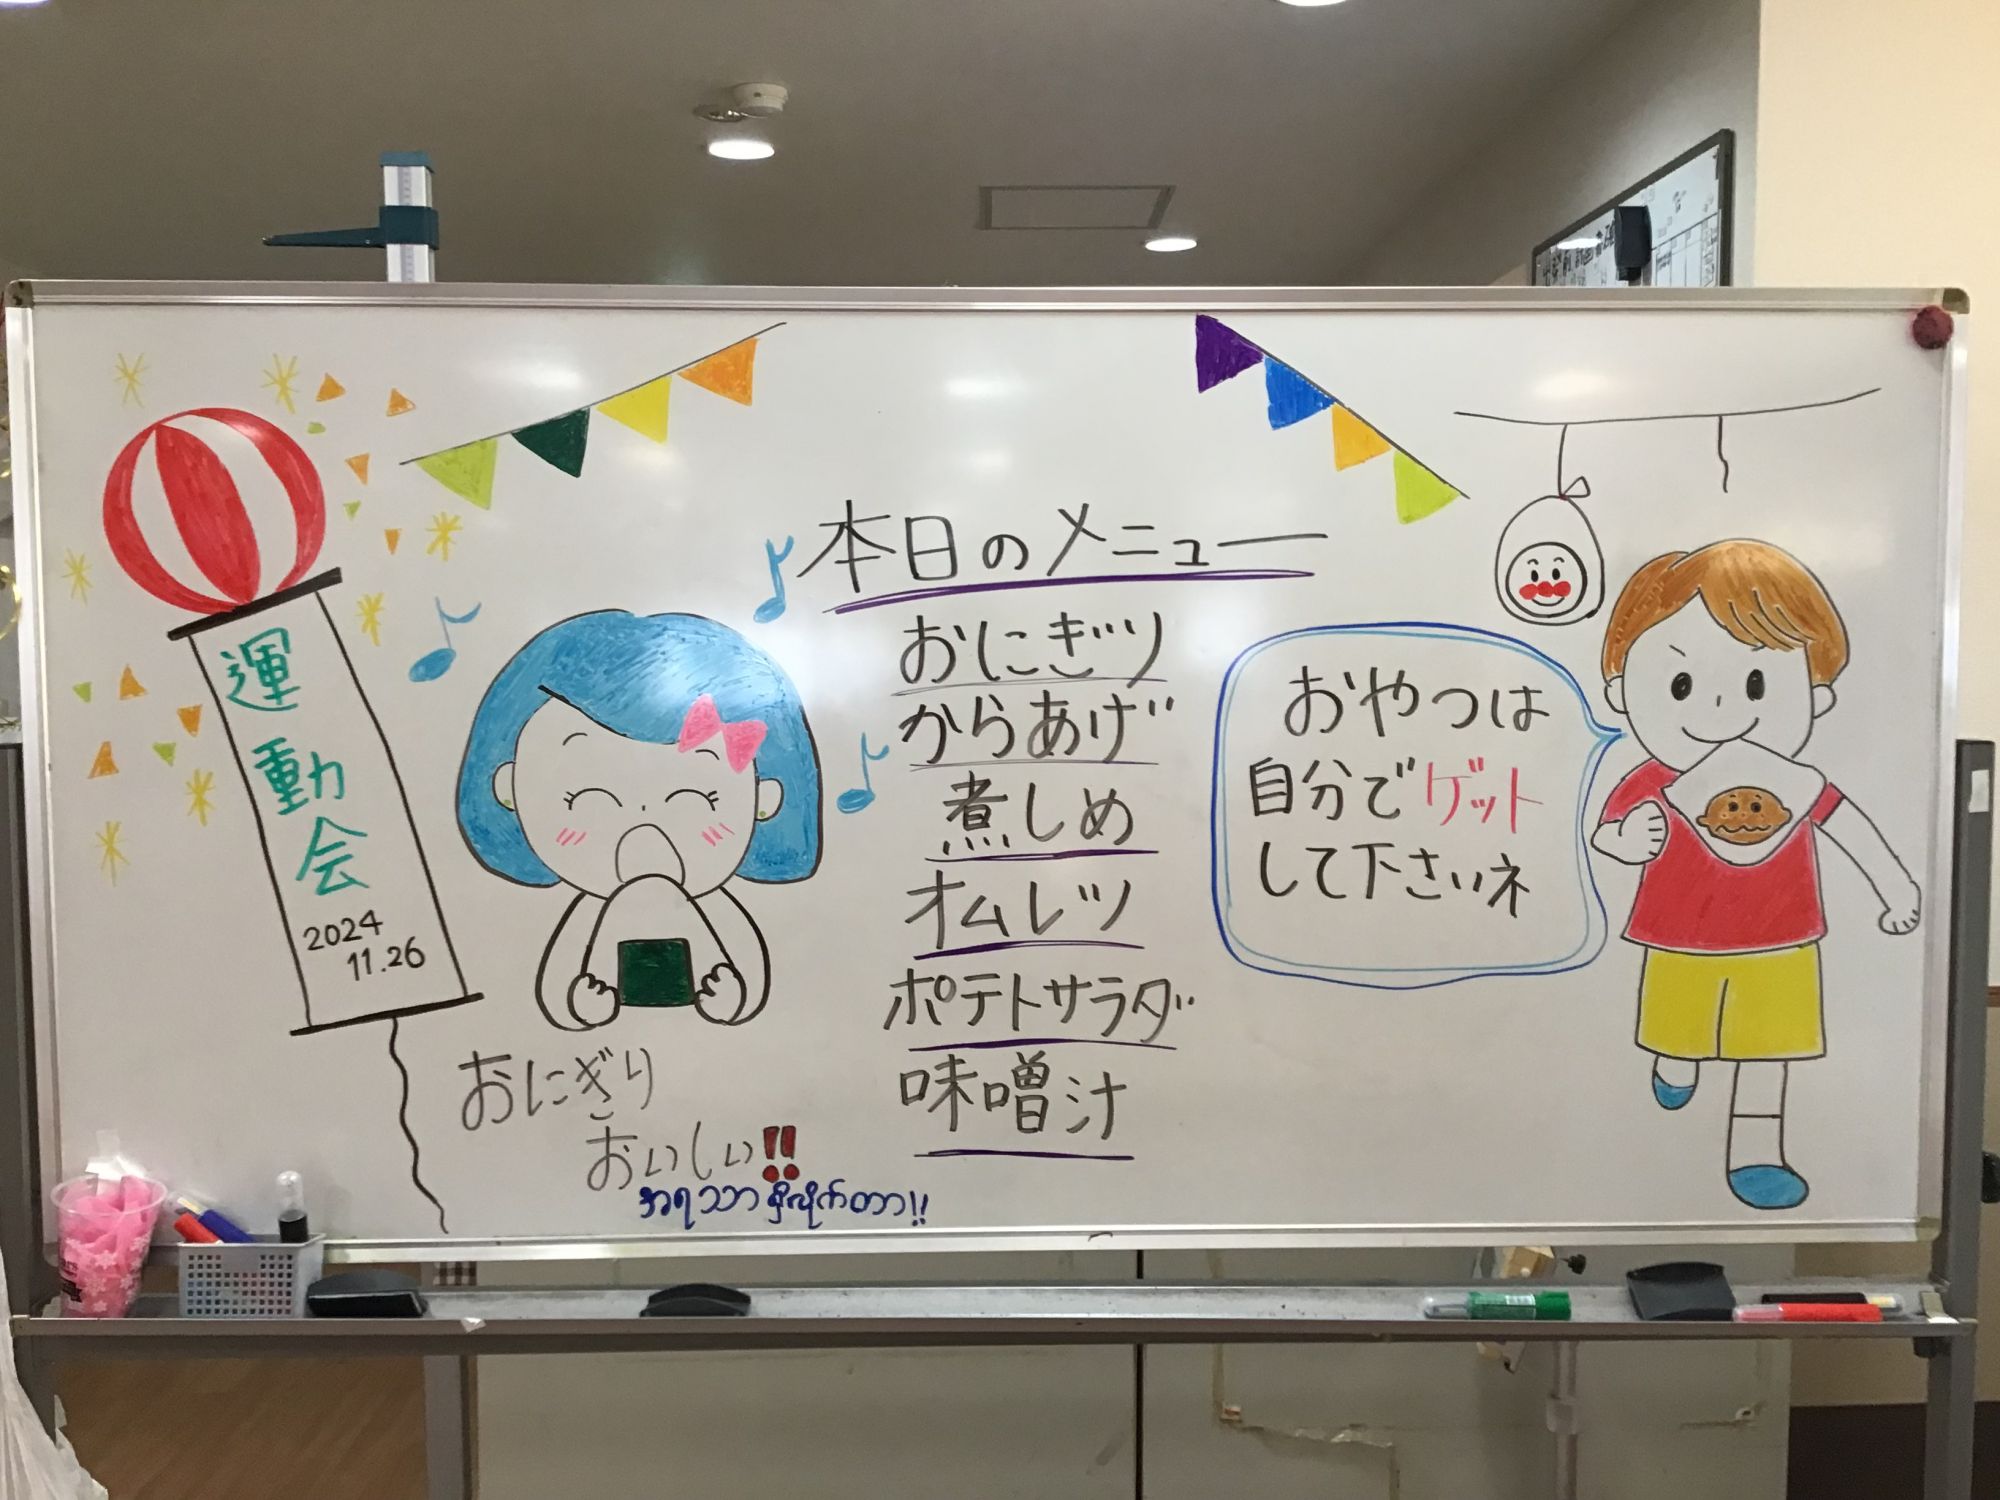 運動会
2024
11.26
本日のメニュー
おにぎり
からあげ
煮しめ
オムレツ
ポテトサラダ
味噌汁
おやつは
自分でゲット
して下さいネ
おにぎり
おいしい!!
အရသာရှိလိုက်တာ!!